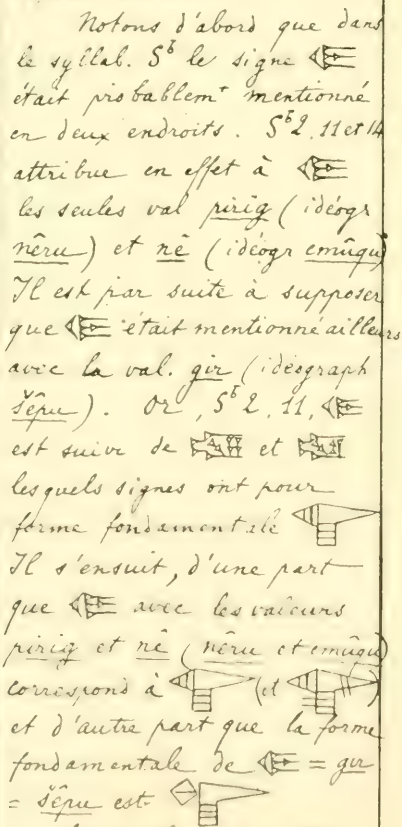 Notons d'abord que dans
le syllab. Sᵇ le signe
était probablemᵗ mentionné
en deux endroits. Sᵇ 2, 11 et 14
attribue en effet à
les seules val pirig (idéogr
nêru) et nê (idéogr emûqu)
Il est par suite à supposer
que était mentionné ailleurs
avec la val. gir (idéograph
šêpu). Or, Sᵇ 2, 11,
est suivi de et
lesquels signes ont pour
forme fondamentale
Il s'ensuit, d'une part
que avec les valeurs
pirig et nê (nêru et emûqu)
correspond à (et )
et d'autre part que la forme
fondamentale de = gir
= šêpu est